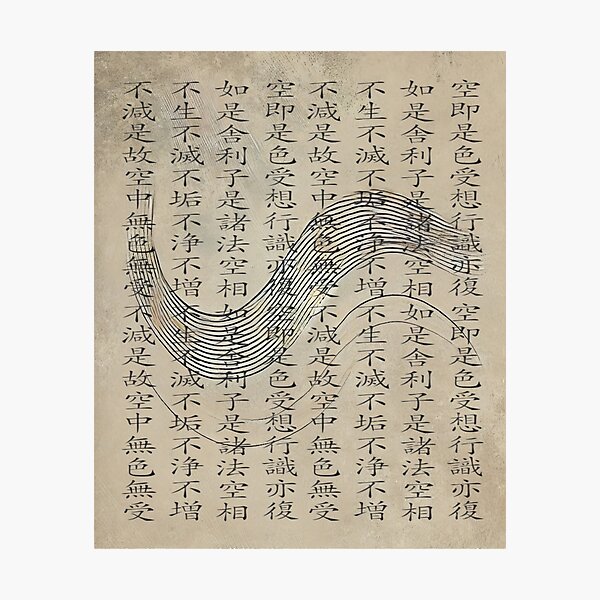 空即是色受想行識亦復空即是色受想行識亦復
如是舎利子是諸法空相如是舎利子是諸法空相
不生不滅不垢不浄不増不生不滅不垢不浄不増
不減是故空中無色無受不減是故空中無色無受
空即是色受想行識亦復空即是色受想行識亦復
如是舎利子是諸法空相如是舎利子是諸法空相
不生不滅不垢不浄不増不生不滅不垢不浄不増
不減是故空中無色無受不減是故空中無色無受